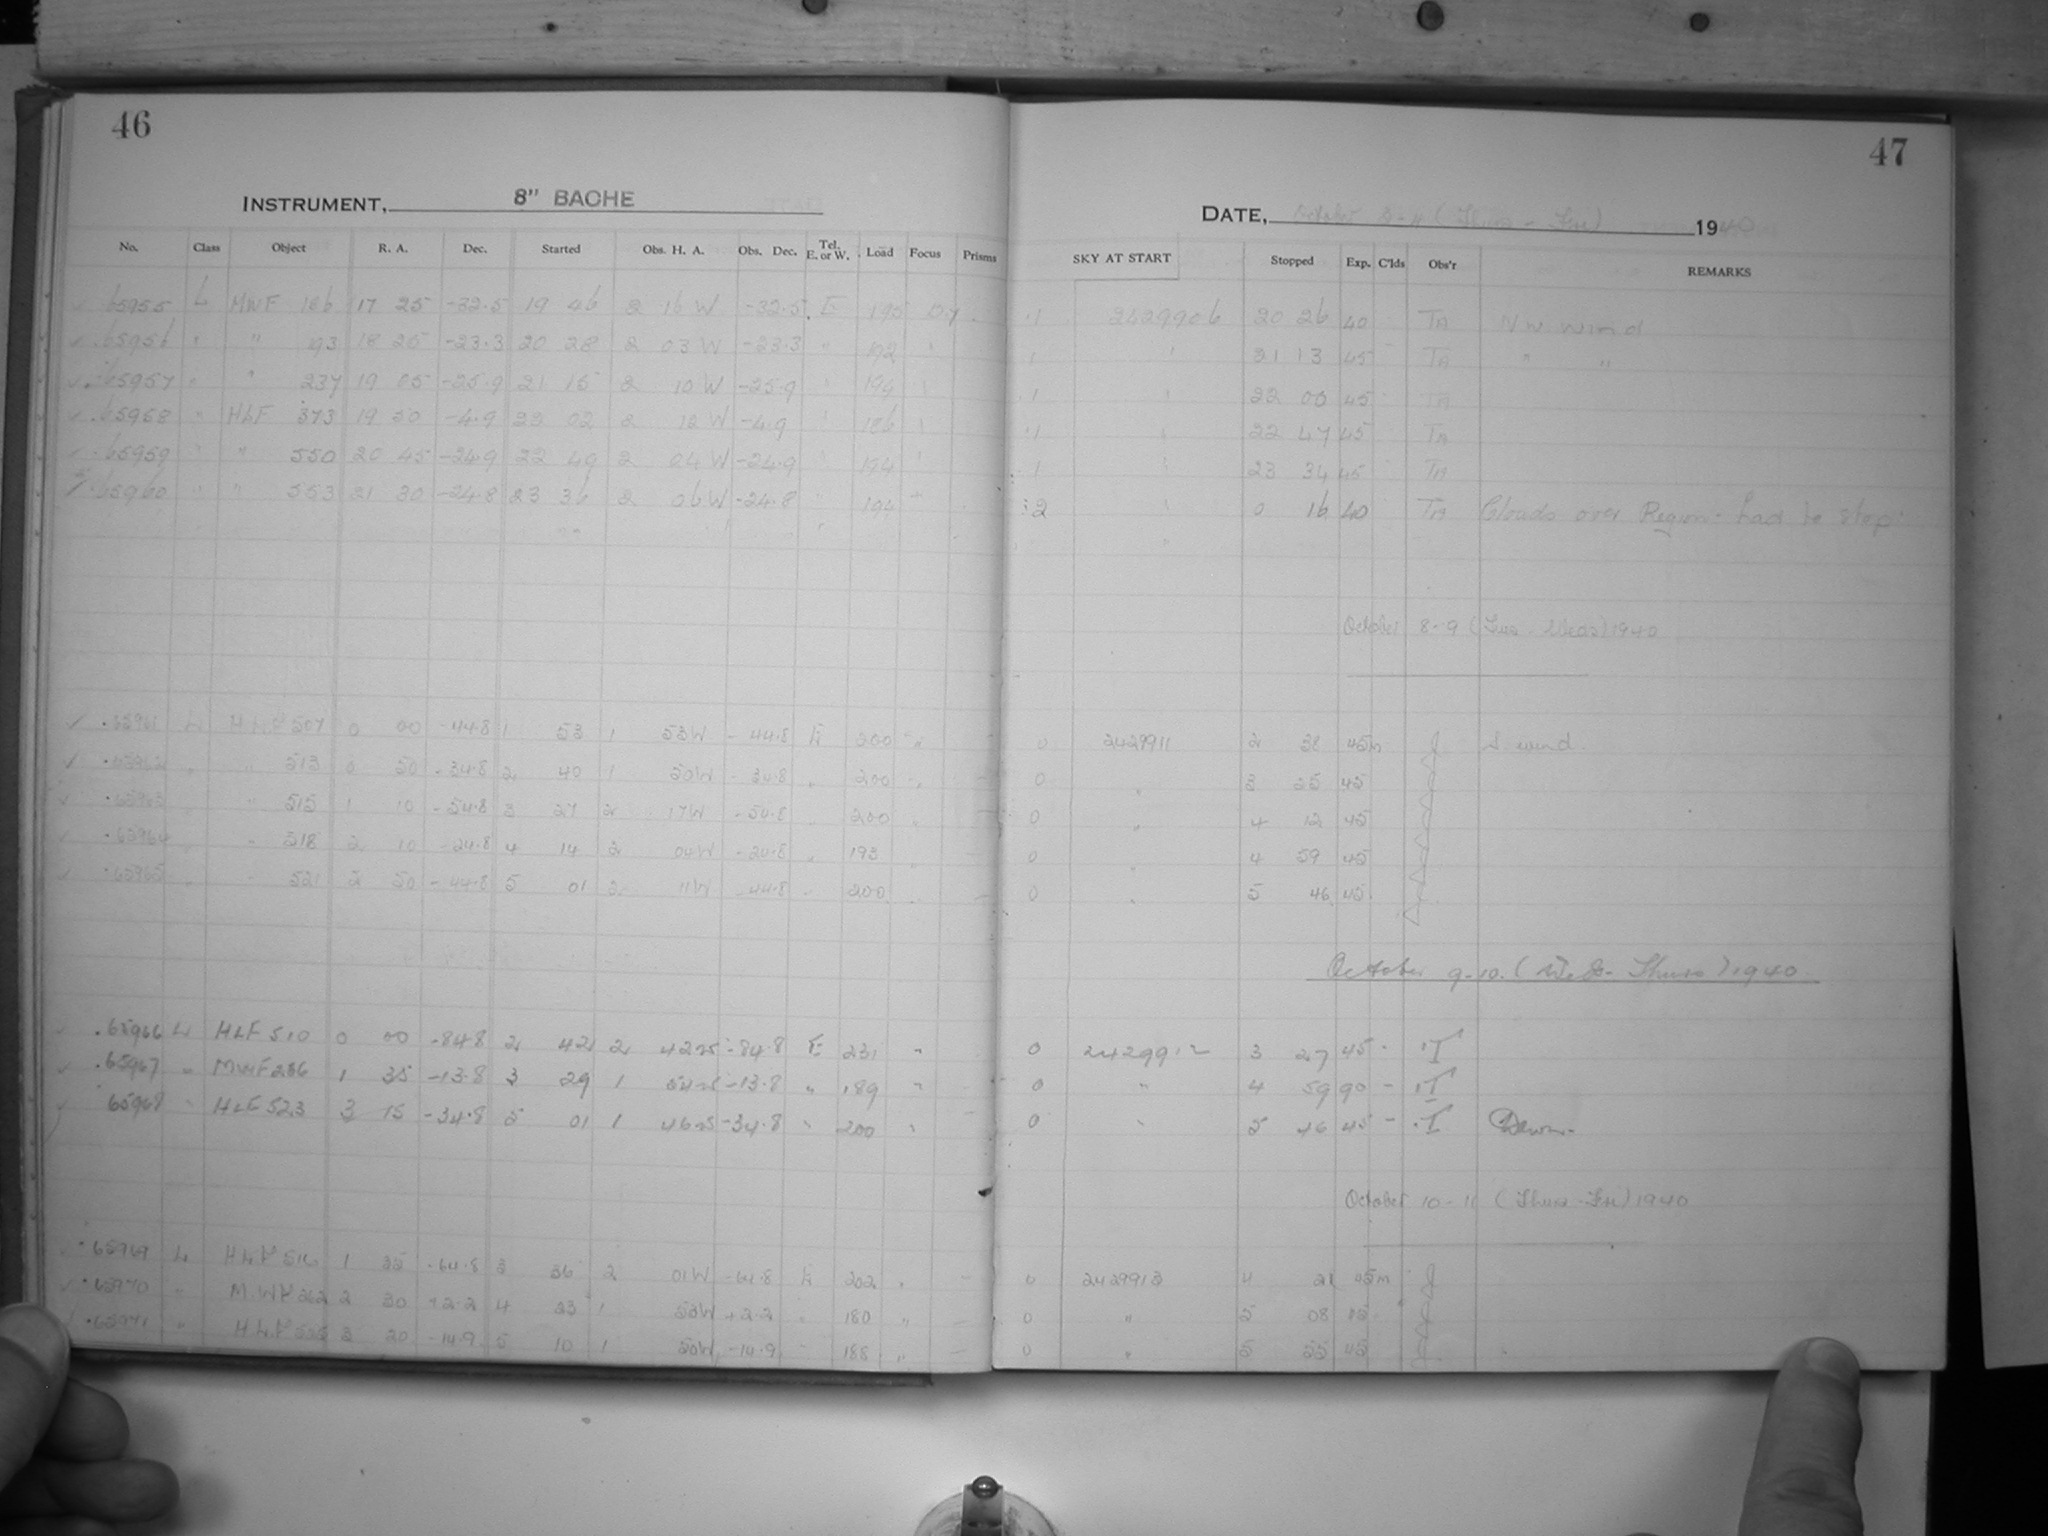 46
INSTRUMENT, 8" BACHE
No. Class Object R. A. Dec. Started Obs. H. A. Obs. Dec. Tel. E. or W. Load Focus Prisms
65955 L MWF 186 17 25 -32.5 19 46 2 16 W -32.5 E 195
65956 " " 93 18 25 -23.3 20 28 2 03 W -23.3 " 192
65957 " " 237 19 05 -25.9 21 15 2 10 W -25.9 " 194
65958 " HLF 373 19 50 -4.9 22 02 2 12 W -4.9 186
65959 " " 550 20 45 -24.9 22 49 2 04 W -24.9 " 194
65960 " " 553 21 30 -24.8 23 36 2 06 W -24.8 " 194
65961 L HLF 507 0 00 -44.8 1 53 1 53 W -44.8 E 200
65962 " " 513 0 50 -34.8 2 40 1 50 W -34.8 " 200
65963 " " 515 1 10 -54.8 3 27 2 17 W -54.8 " 200
65964 " " 518 2 10 -24.8 4 14 2 04 W -24.8 " 193
65965 " " 521 2 50 -44.8 5 01 2 11 W -44.8 " 200
65966 L HLF 510 0 00 -84.8 2 42 2 42 W -84.8 E 231 "
65967 " MWF 286 1 35 -13.8 3 29 1 54 W -13.8 " 189 "
65968 " HLF 523 3 15 -34.8 5 01 1 46 W -34.8 " 200 "
65969 L HLF 516 1 35 -64.8 3 36 2 01 W -64.8 E 202 "
65970 " M.WF 262 2 30 +2.2 4 23 1 53 W +2.2 " 180 "
65971 " HLF 3 20 -14.9 5 10 1 50 W -14.9 " 188 "
47
DATE, October (Thurs - Fri) 1940
SKY AT START Stopped Exp. C'lds Obs'r REMARKS
1 2429906 20 26 40 TA NW wind
1 " 21 13 45 TA " "
1 " 22 00 45 TA
1 " 22 47 45 TA
1 " 23 34 45 TA
2 " 0 16 40 TA Clouds over Region - had to stop
October 8-9 (Tues - Weds) 1940
0 2429911 2 38 45m J S wind.
0 " 3 25 45
0 " 4 12 45
0 " 4 59 45
0 " 5 46 45
October 9-10. (Wed- Thurs) 1940
0 2429912 3 27 45 - T
0 " 4 59 90 - T
0 " 5 46 45 - T Dawn.
October 10-11 (Thurs - Fri) 1940
0 2429913 4 21 45m J
0 " 5 08 45
0 " 5 55 45